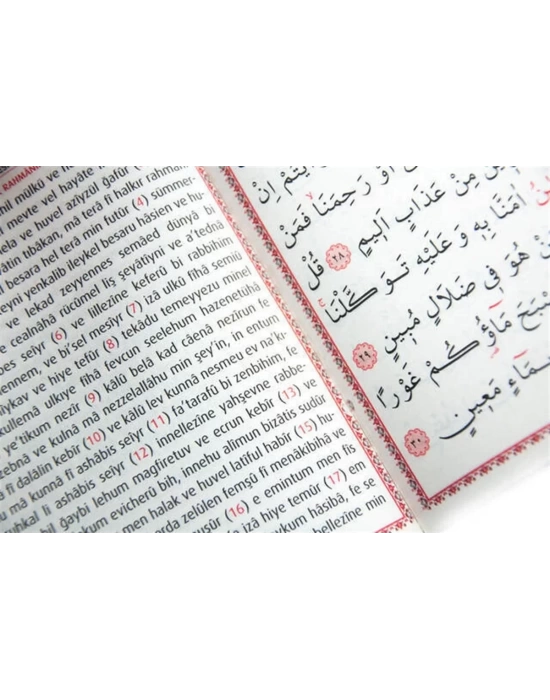 RAHMANİ
mil mülkü ve h
meyte vel hayâte
ela ve huvel azîyzül gafûr
vâtin tıbâkan, mâ terâ fî halkır rahmân
l besara hel terâ min futûr (4) sümmer-
teyni yenkalib ileykel besaru hâsien ve hu-
ve lekad zeyyennes semâed dünyâ bi
e cealnâhâ rücûmel liş şeyâtiyni ve a'tednâ
bes seiyr (6) ve lillezîne keferû bi rabbihim
ennem, ve bi'sel mesiyr (7) izâ ulkû fîhâ semiû
hîykav ve hiye tefûr (8) tekâdu temeyyezu minel
küllemâ ulkıye fîhâ fevcun seelehum hazenetühâ
e'tikum nezîr (9) kâlû belâ kad câenâ nezîrun fe
zebnâ ve kulnâ mâ nezzelallâhu min şey'in, in entum
â fî dalâlin kebîr (10) ve kâlû lev kunnâ nesmeu ev na'k-
mâ kunnâ fî ashâbis seiyr (11) fa'tarafû bi zenbihim, fe
uhkal li ashâbis seiyr (12) innellezîne yahşevne rabbe-
bil ğaybi lehum mağfiretuv ve ecrun kebîr (13) ve
kum evicherû bih, innehu alîmun bizâtis sudûr
men halak ve huvel latîful habîr (15) hu-
arda zelûlen femşû fî menâkibihâ ve
nuşûr (16) e emintum men fis
izâ hiye temûr (17) em
aykum hâsibâ, fe se
bellezîne min
اَوْ رَحِمَنَاۙ فَمَنْ
مِنْ عَذَابٍ اَلٖيمٍ ﴿٢٨﴾ قُلْ
اٰمَنَّا بِهٖ وَعَلَيْهِ تَوَكَّلْنَاۚ
هُوَ فٖي ضَلَالٍ مُبٖينٍ ﴿٢٩﴾
مَٓاؤُكُمْ غَوْرًا
مَعٖينٍ ﴿٣٠﴾